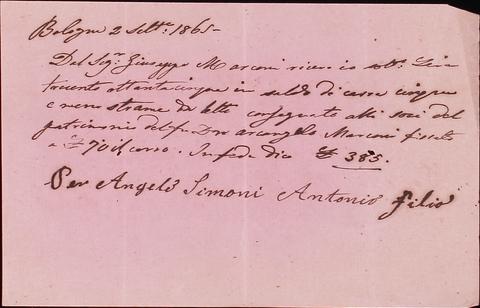 Bologna 2 Sett.e 1865-
Dal Sig.r Giuseppe Marconi ricevo io sott.o Lire
trecento ottantacinque in saldo di carra cinque
e mezzo strame da letto consegnato alli soci del
patrimonio del fu Don arcangelo Marconi fissato
a £ 70 il carro. In fede dico £ 385.
Per Angelo Simoni Antonio filio